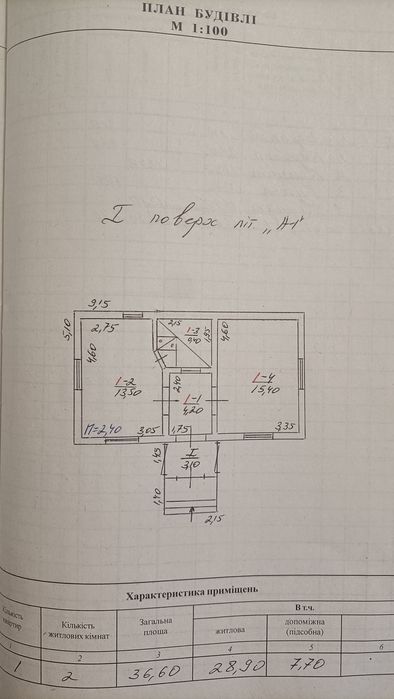 ПЛАН БУДІВЛІ
М 1:100
I поверх літ. „А-I"
9,15
5,10
2,75
2,15
1-3
1,95
4,60
4,60
1-2
13,50
2,40
1-1
4,20
1-4
15,40
П=2,40
3,05
1,75
3,35
1,45
I
3,10
1,40
2,15
Характеристика приміщень
Кількість квартир
Кількість житлових кімнат
Загальна площа
В т.ч.
житлова
допоміжна (підсобна)
1 2 3 4 5 6
1 2 36,60 28,90 7,70